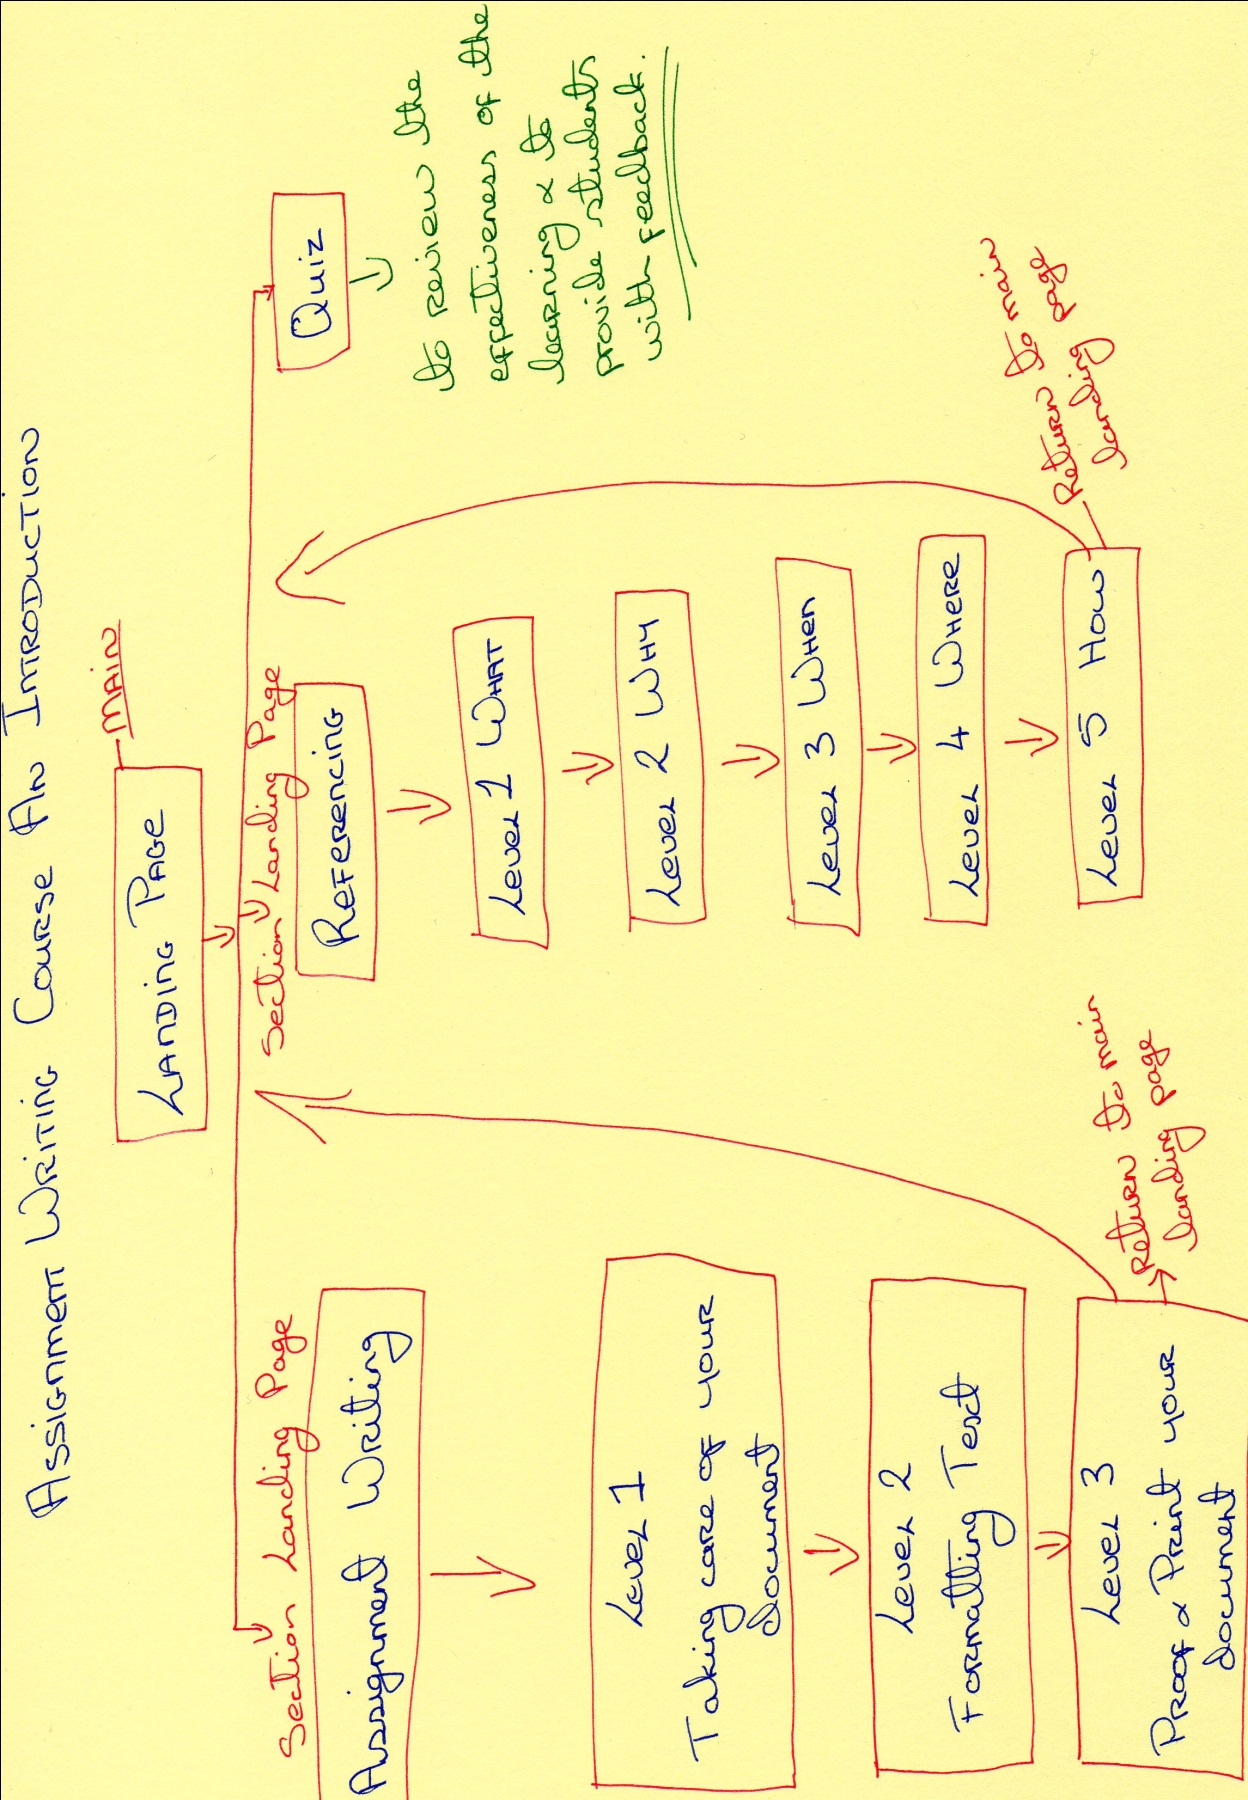 Assignment Writing Course An Introduction
Landing Page
Main
Section Landing Page
Assignment Writing
Level 1
Taking care of your
document
Level 2
Formatting Text
Level 3
Proof & Print your
document
Return to main
landing page
Section Landing Page
Referencing
Level 1 What
Level 2 Why
Level 3 When
Level 4 Where
Level 5 How
Return to main
landing page
Quiz
to review the
effectiveness of the
learning & to
provide students
with feedback.